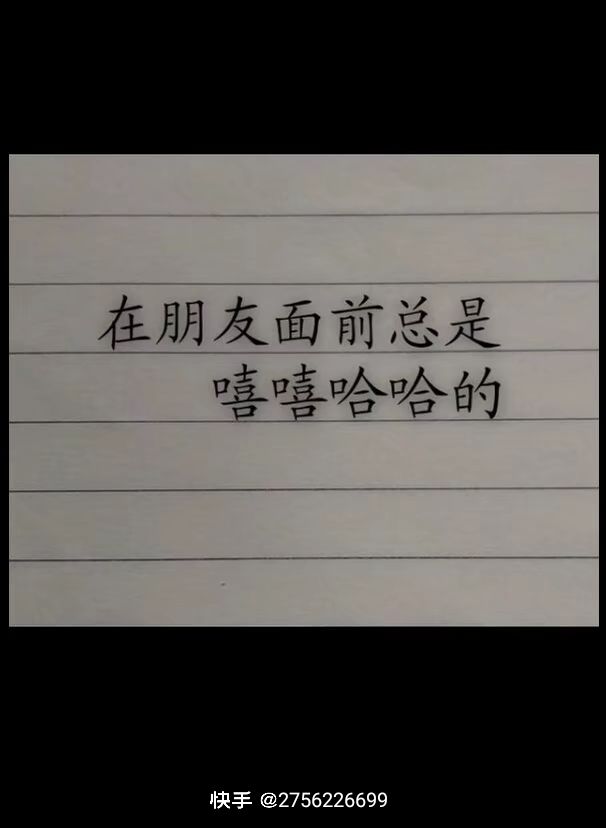 在朋友面前总是
嘻嘻哈哈的
快手 @2756226699